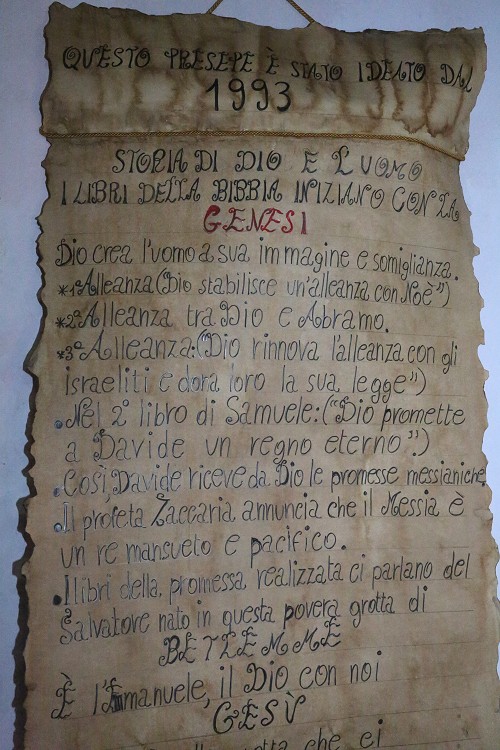 QUESTO PRESEPE È STATO IDEATO DAL
1993
STORIA DI DIO E L'UOMO
I LIBRI DELLA BIBBIA INIZIANO CON LA
GENESI
Dio crea l'uomo a sua immagine e somiglianza.
*1ªAlleanza (Dio stabilisce un'alleanza con Noè")
*2ªAlleanza tra Dio e Abramo.
*3ªAlleanza:(Dio rinnova l'alleanza con gli
israeliti e dona loro la sua legge")
.Nel 2° libro di Samuele:("Dio promette
a Davide un regno eterno".)
.Così, Davide riceve da Dio le promesse messianiche
.Il profeta Zaccaria annuncia che il Messia è
un re mansueto e pacifico.
.I libri della promessa realizzata ci parlano del
Salvatore nato in questa povera grotta di
BETLEMME
È l'Emmanuele, il Dio con noi
GESÙ
che ci